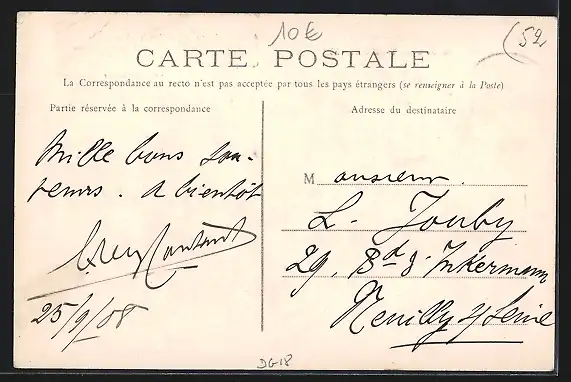 10€
(52
CARTE POSTALE
La Correspondance au recto n'est pas acceptée par tous les pays étrangers (se renseigner à la Poste)
Partie réservée à la correspondance
Adresse du destinataire
Mille bons sou-
venirs. A bientôt
25/9/08
Monsieur.
L. Jouby
29, Bd d'Inkermann
Neuilly s/ Seine
DG18